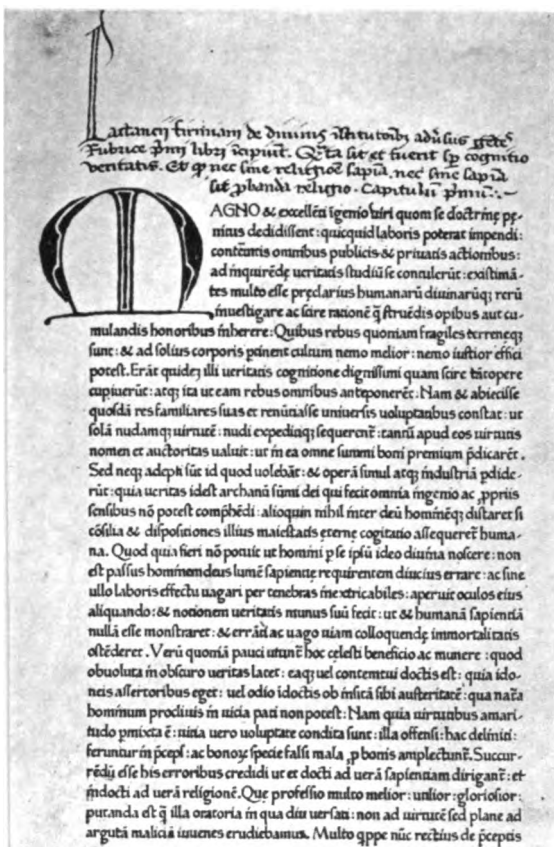 Lactancii firmiani de diuinis istitutoib; adusus gẽtes
Rubrice pmi libri icipiũt. Quãta sit et fuerit sp cognitio
ueritatis. Et qp nec sine religioẽ sapia, nec sine sapia
sit phanda religio. Capitulũ pmũ:.~
MAGNO & excellẽti igenio uiri quom se doctrinę pę-
nitus dedidissent: quicquid laboris poterat impendi:
contẽntis omnibus publicis & priuatis actionibus:
ad inquirẽdę ueritatis studiũ se contulerũt: existimã-
tes multo esse pręclarius humanarũ diuinarũq; rerũ
inuestigare ac scire rationẽ q̃ struẽdis opibus aut cu-
mulandis honoribus inherere: Quibus rebus quoniam fragiles terreneq;
sunt: & ad solius corporis ptinent cultum nemo melior: nemo iustior effici
potest. Erãt quidẽ illi ueritatis cognitione dignissimi quam scire tãtopere
cupiuerũt: atq; ita ut eam rebus omnibus anteponerẽt: Nam & abiecisse
quosdã res familiares suas et renũtiasse uniuersis uoluptatibus constat: ut
solã nudamq; uirtutẽ: nudi expeditiq; sequerent̃: tantũ apud eos uirtutis
nomen et auctoritas ualuit: ut in ea omne summi boni premium pdicarẽt.
Sed neq; adepti sũt id quod uolebãt: & operã simul atq; industriã pdide-
rũt: quia ueritas idest archanũ sũmi dei qui fecit omnia ingenio ac ,ppriis
sensibus nõ potest comphẽdi: alioquin nihil inter deũ hominẽq; distaret si
cõsilia & dispositiones illius maiestatis eternę cogitatio assequeret̃ huma-
na. Quod quia fieri nõ potuit ut homini p se ipsũ ideo diuina noscere: non
est passus hominem deus lumẽ sapientię requirentem diutius errare: ac sine
ullo laboris effectu uagari per tenebras inextricabiles: aperuit oculos eius
aliquando: & notionem ueritatis munus suũ fecit: ut & humanã sapientiã
nullã esse monstraret: & errãti ac uago uiam colloquendę immortalitatis
ostẽderet. Verũ quoniã pauci utunt̃ hoc cęlesti beneficio ac munere: quod
obuoluta in obscuro ueritas latet: eaq; uel contemtui doctis est: quia ido-
neis assertoribus eget: uel odio idoctis ob insitã sibi austeritatẽ: qua nat̃a
hominum procliuis in uicia pati non potest: Nam quia uirtutibus amari-
tudo pmixta ẽ: uitia uero uoluptate condita sunt: illa offensi: hac deliniti:
feruntur in pceps: ac bonoꝝ specie falsi mala ,p bonis amplectunt̃. Succur-
rẽdũ esse his erroribus credidi ut et docti ad uerã sapientiam dirigant̃: et
indocti ad uerã religionẽ. Que professio multo melior: utilior: gloriosior:
putanda est q̃ illa oratoria in qua diu uersati: non ad uirtutẽ sed plane ad
argutã maliciã iuuenes erudiebamus. Multo qppe nũc rectius de pceptis